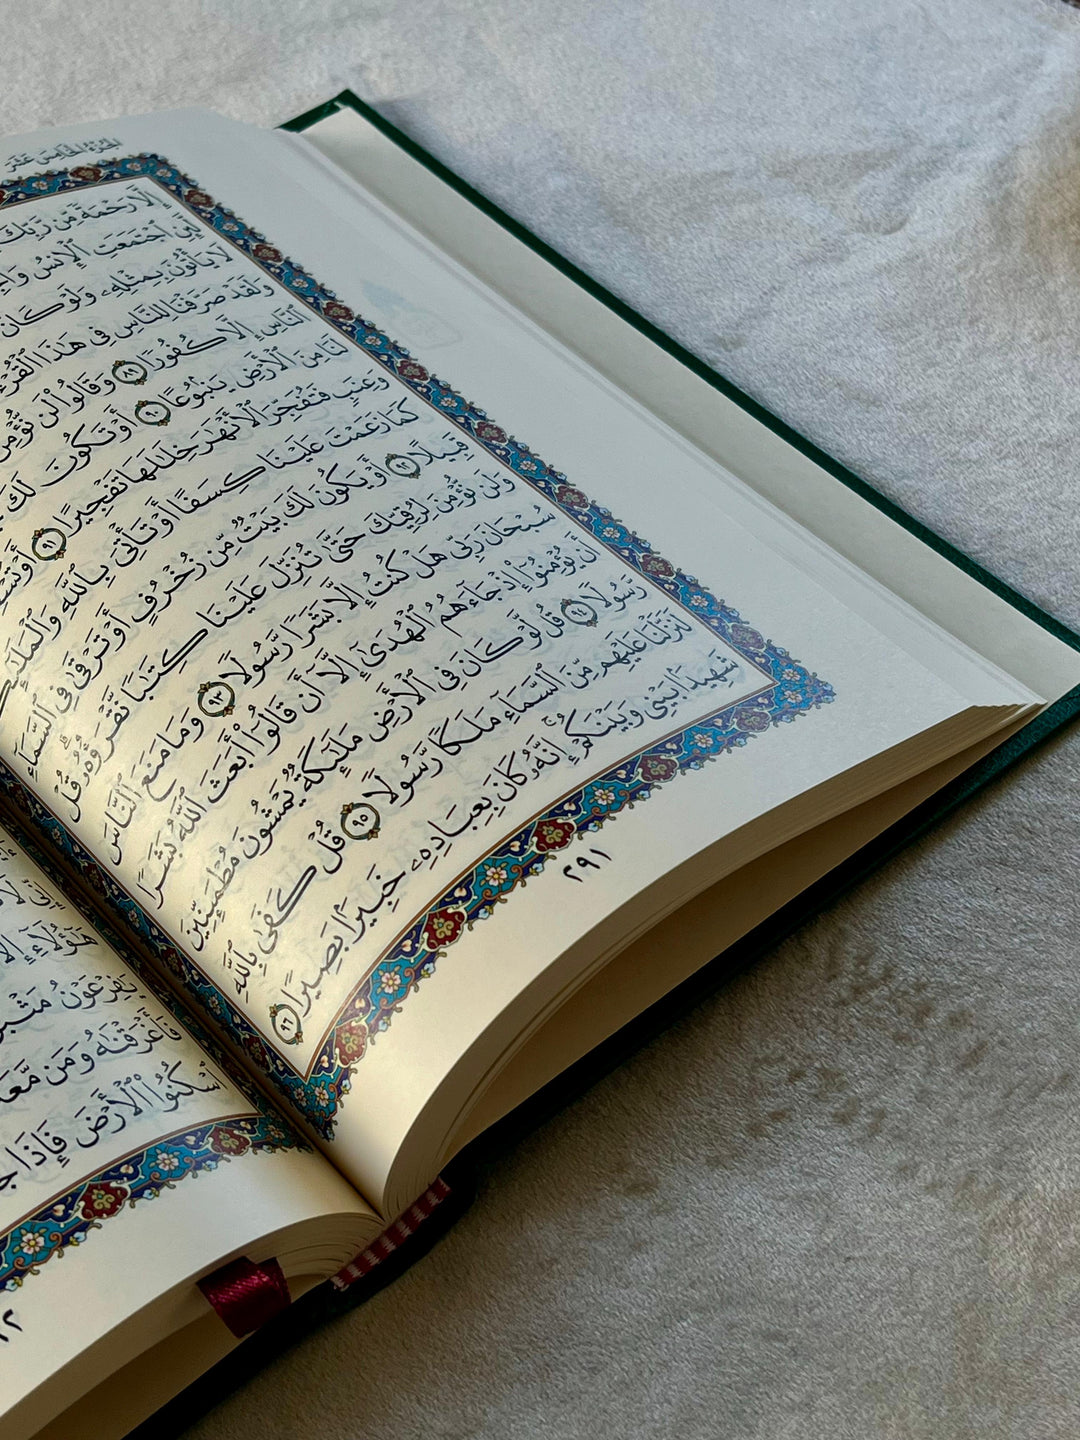 الجزء الخامس عشر
إِلَّا رَحْمَةً مِّن رَّبِّكَ
لَّئِنِ ٱجْتَمَعَتِ ٱلْإِنسُ
لَا يَأْتُونَ بِمِثْلِهِۦ وَلَوْ كَانَ
وَلَقَدْ صَرَّفْنَا لِلنَّاسِ فِى هَٰذَا ٱلْقُرْءَانِ
ٱلنَّاسِ إِلَّا كُفُورًا ٨٩ وَقَالُوا۟ لَن نُّؤْمِنَ
لَنَا مِنَ ٱلْأَرْضِ يَنۢبُوعًا ٩٠ أَوْ تَكُونَ لَكَ
وَعِنَبٍ فَتُفَجِّرَ ٱلْأَنْهَٰرَ خِلَٰلَهَا تَفْجِيرًا ٩١ أَوْ تُسْقِطَ
كَمَا زَعَمْتَ عَلَيْنَا كِسَفًا أَوْ تَأْتِىَ بِٱللَّهِ وَٱلْمَلَٰٓئِكَةِ
قَبِيلًا ٩٢ أَوْ يَكُونَ لَكَ بَيْتٌ مِّن زُخْرُفٍ أَوْ تَرْقَىٰ فِى ٱلسَّمَآءِ
وَلَن نُّؤْمِنَ لِرُقِيِّكَ حَتَّىٰ تُنَزِّلَ عَلَيْنَا كِتَٰبًا نَّقْرَؤُهُۥ ۗ قُلْ
سُبْحَانَ رَبِّى هَلْ كُنتُ إِلَّا بَشَرًا رَّسُولًا ٩٣ وَمَا مَنَعَ ٱلنَّاسَ
أَن يُؤْمِنُوٓا۟ إِذْ جَآءَهُمُ ٱلْهُدَىٰٓ إِلَّآ أَن قَالُوٓا۟ أَبَعَثَ ٱللَّهُ بَشَرًا
رَّسُولًا ٩٤ قُل لَّوْ كَانَ فِى ٱلْأَرْضِ مَلَٰٓئِكَةٌ يَمْشُونَ مُطْمَئِنِّينَ
لَنَزَّلْنَا عَلَيْهِم مِّنَ ٱلسَّمَآءِ مَلَكًا رَّسُولًا ٩٥ قُلْ كَفَىٰ بِٱللَّهِ
شَهِيدًۢا بَيْنِى وَبَيْنَكُمْ ۚ إِنَّهُۥ كَانَ بِعِبَادِهِۦ خَبِيرًۢا بَصِيرًا ٩٦
٢٩١
هَٰٓؤُلَآءِ إِلَّا
يَٰفِرْعَوْنُ مَثْبُورًا
فَأَغْرَقْنَٰهُ وَمَن مَّعَهُۥ
ٱسْكُنُوا۟ ٱلْأَرْضَ فَإِذَا